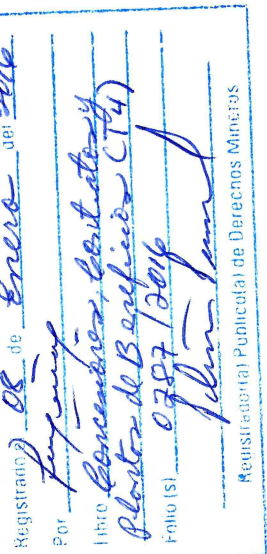 Registrado a) 08 de Enero del 2016
Por
Libro Concesiones, Contratos y
Plantas de Beneficios (T4)
Folio (s) 0787/2016
Registrador(a) Publico(a) de Derechos Mineros